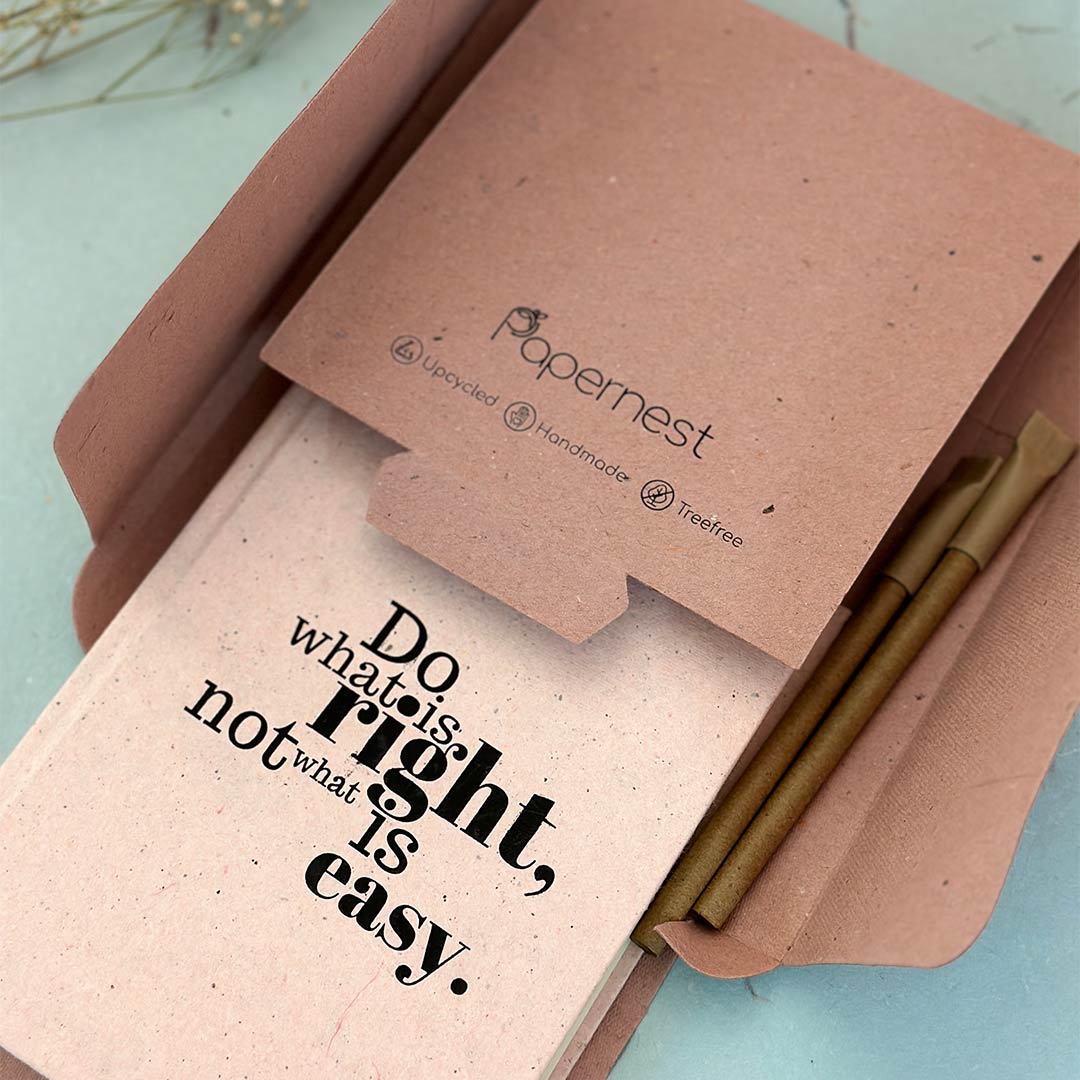 Papernest
Upcycled Handmade Treefree
Do
what is
right,
not what
is
easy.